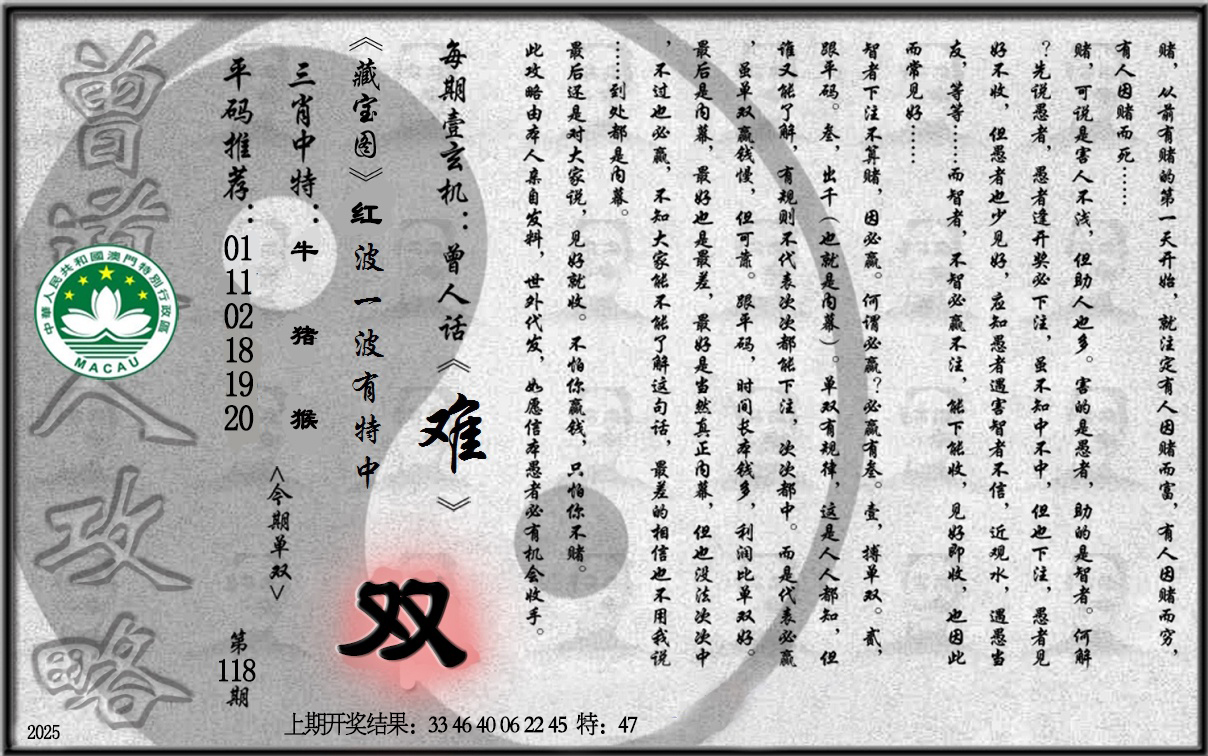 赌，从前有赌的第一天开始，就注定有人因赌而富，有人因赌而穷，
有人因赌而死……
赌，可说是害人不浅，但助人也多。害的是愚者，助的是智者。何解
？先说愚者，愚者逢开奖必下注，虽不知中不中，但也下注，愚者见
好不收，但愚者也少见好，应知愚者遇害智者不信，近观水，遇愚当
友，等等……而智者，不智必赢不注，能下能收，见好即收，也因此
而常见好……
智者下注不算赌，因必赢。何谓必赢？必赢有叁。壹，搏单双。贰，
跟平码。叁，出千（也就是内幕）。单双有规律，这是人人都知，但
谁又能了解，有规则不代表次次都能下注，次次都中。而是代表必赢
，虽单双赢钱慢，但可靠。跟平码，时间长本钱多，利润比单双好。
最后是内幕，最好也是最差，最好是当然真正内幕，但也没法次次中
，不过也必赢，不知大家能不能了解这句话，最差的相信也不用我说
……到处都是内幕。
最后还是对大家说，见好就收。不怕你赢钱，只怕你不赌。
此攻略由本人亲自发料，世外代发，如愿信本愚者必有机会收手。
每期壹玄机：曾人话《难》
《藏宝图》红波一波有特中
三肖中特：牛 猪 猴
<今期单双>
双
平码推荐：01 11 02 18 19 20
第118期
曾道人攻略
中華人民共和國澳門特別行政區
MACAU
上期开奖结果：33 46 40 06 22 45 特：47
2025